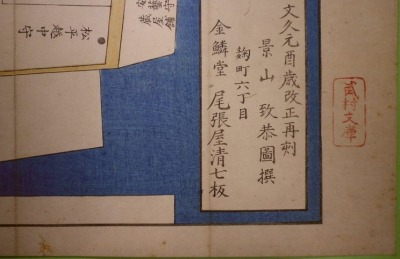 文久元酉歳改正再刻
景山致恭圖撰
麹町六丁目
金鱗堂 尾張屋清七板
守舖
安藝屋
蔵
松平越中守